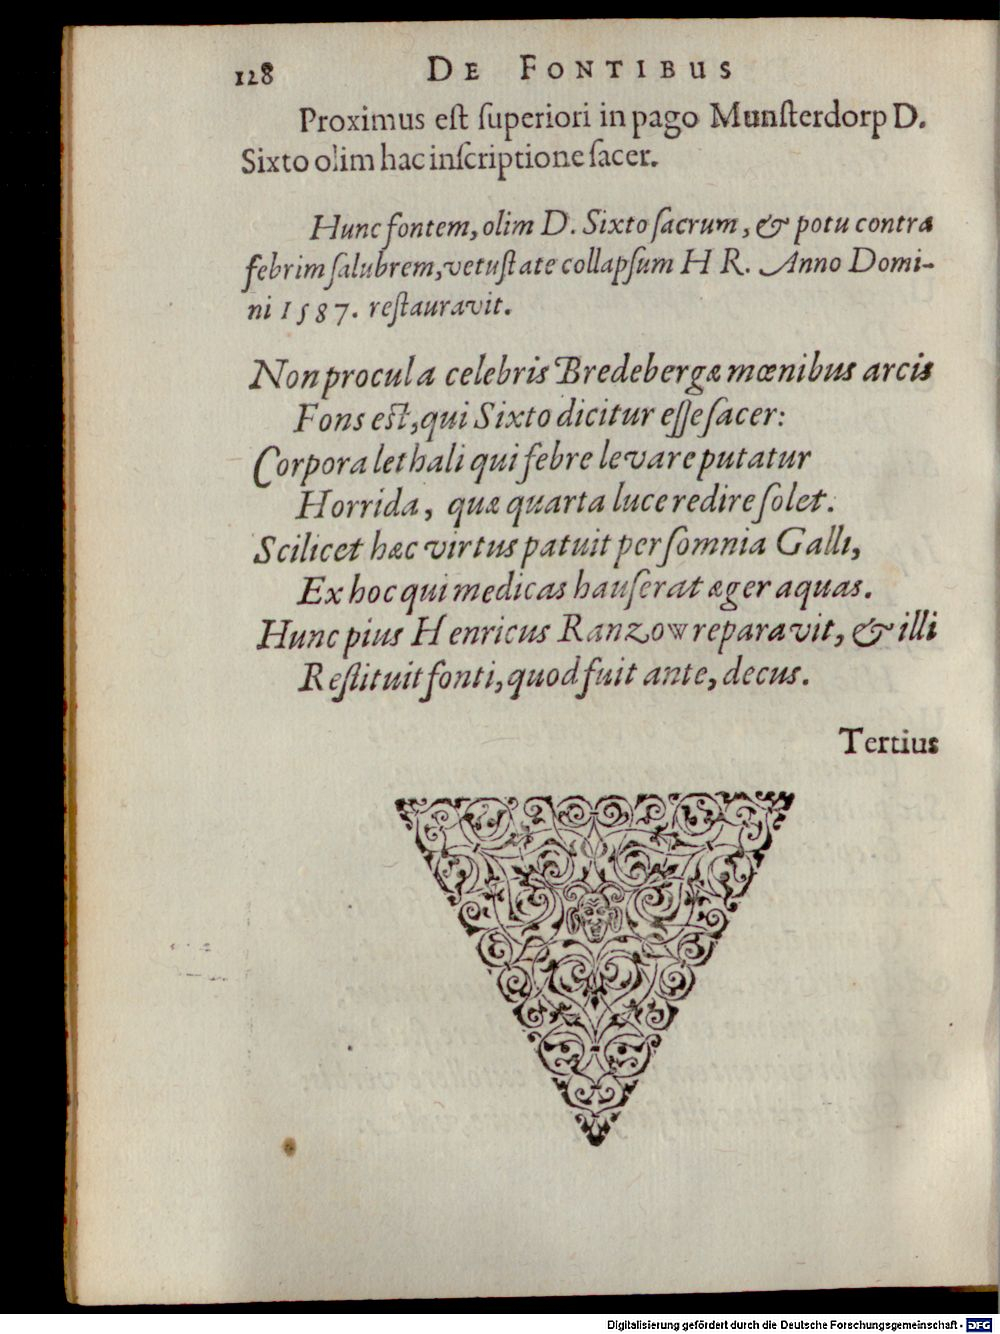 128 DE FONTIBUS
Proximus eſt ſuperiori in pago Munſterdorp D.
Sixto olim hac inſcriptione ſacer.
Hunc fontem, olim D. Sixto ſacrum, & potu contra
febrim ſalubrem, vetuſtate collapſum H R. Anno Domi-
ni 1587. reſtauravit.
Non procul a celebris Bredebergæ mœnibus arcis
Fons eſt, qui Sixto dicitur eſſe ſacer:
Corpora lethali qui febre levare putatur
Horrida, quæ quarta luce redire ſolet.
Scilicet hæc virtus patuit per ſomnia Galli,
Ex hoc qui medicas hauſerat æger aquas.
Hunc pius Henricus Ranzow reparavit, & illi
Reſtituit fonti, quod fuit ante, decus.
Tertius
Digitalisierung gefördert durch die Deutsche Forschungsgemeinschaft - DFG